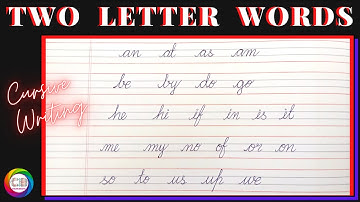 TWO LETTER WORDS
Cursive
Writing
an at as am
be by do go
he hi if in is it
me my no of or on
so to us up we